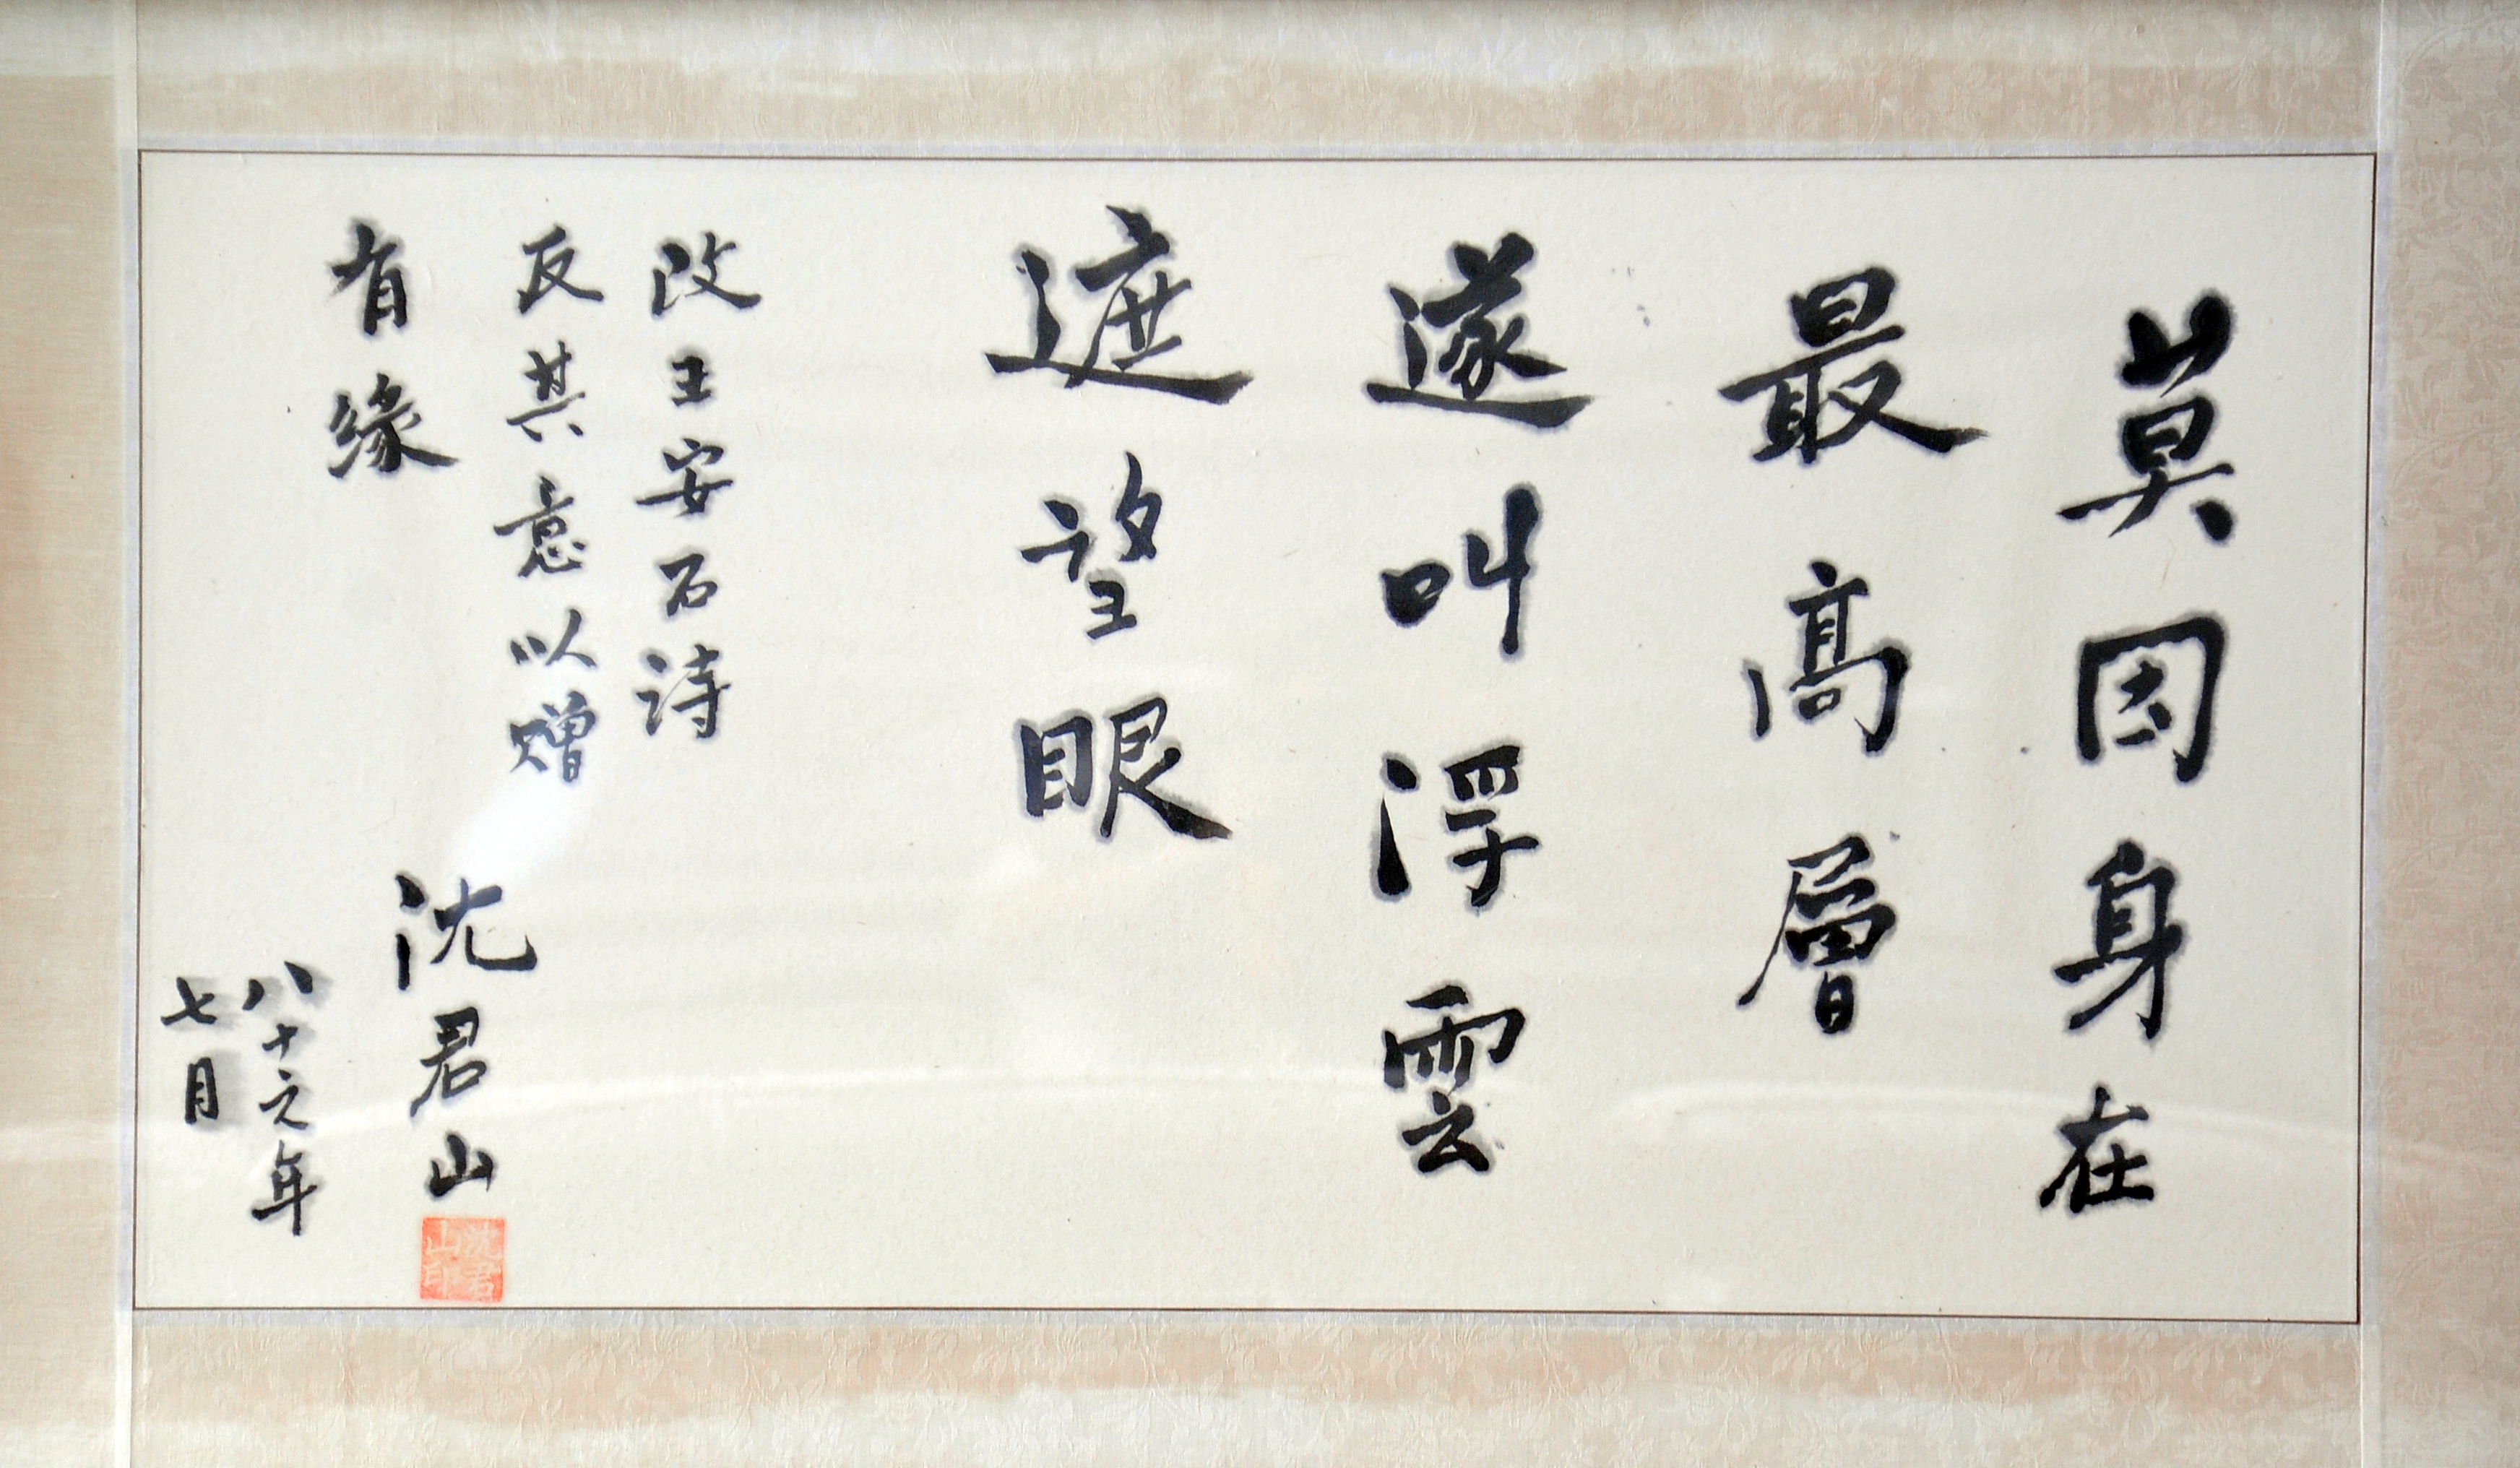 莫因身在
最高層
遂叫浮雲
遮望眼
改王安石詩
反其意以贈
有緣
沈君山
八十六年
七月
沈君
山印